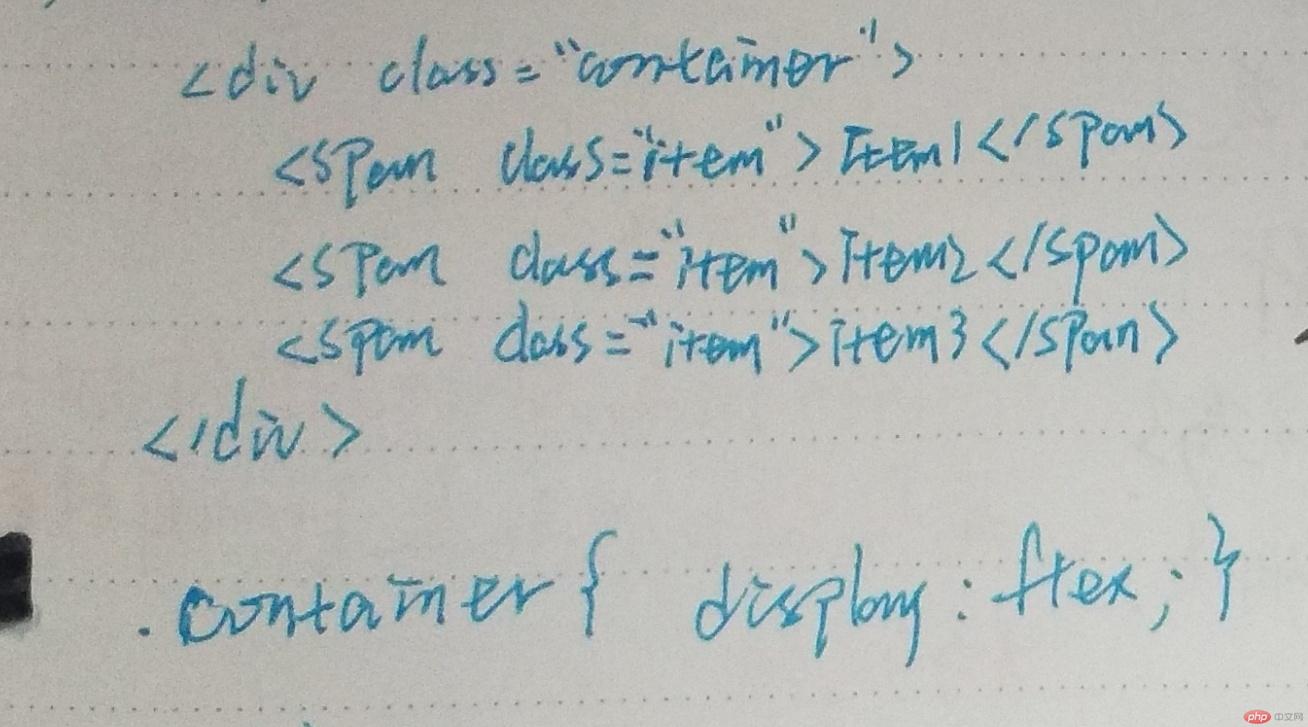 <div class="container">
<span class="item">Item1</span>
<span class="item">Item2</span>
<span class="item">item3</span>
</div>
.container{ display:flex;}
php 中文网